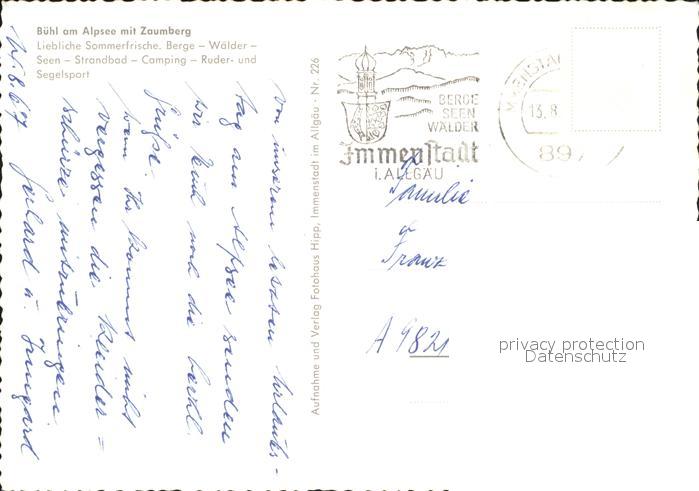 Bühl am Alpsee mit Zaumberg
Liebliche Sommerfrische. Berge – Wälder –
Seen – Strandbad – Camping – Ruder- und
Segelsport
Von unserem letzten Urlaubs-
tag am Alpsee senden
wir Euch noch die herzl.
Grüße.
Wenn Ihr kommt nicht
vergessen die Kinder=
schürze mitzubringen.
Gerhard u. Irmgard
Aufnahme und Verlag Fotohaus Hipp, Immenstadt im Allgäu · Nr. 226
BERGE
SEEN
WÄLDER
Immenstadt
i. ALLGÄU
13.8.
897
Familie
Franz
A 9821
privacy protection
Datenschutz